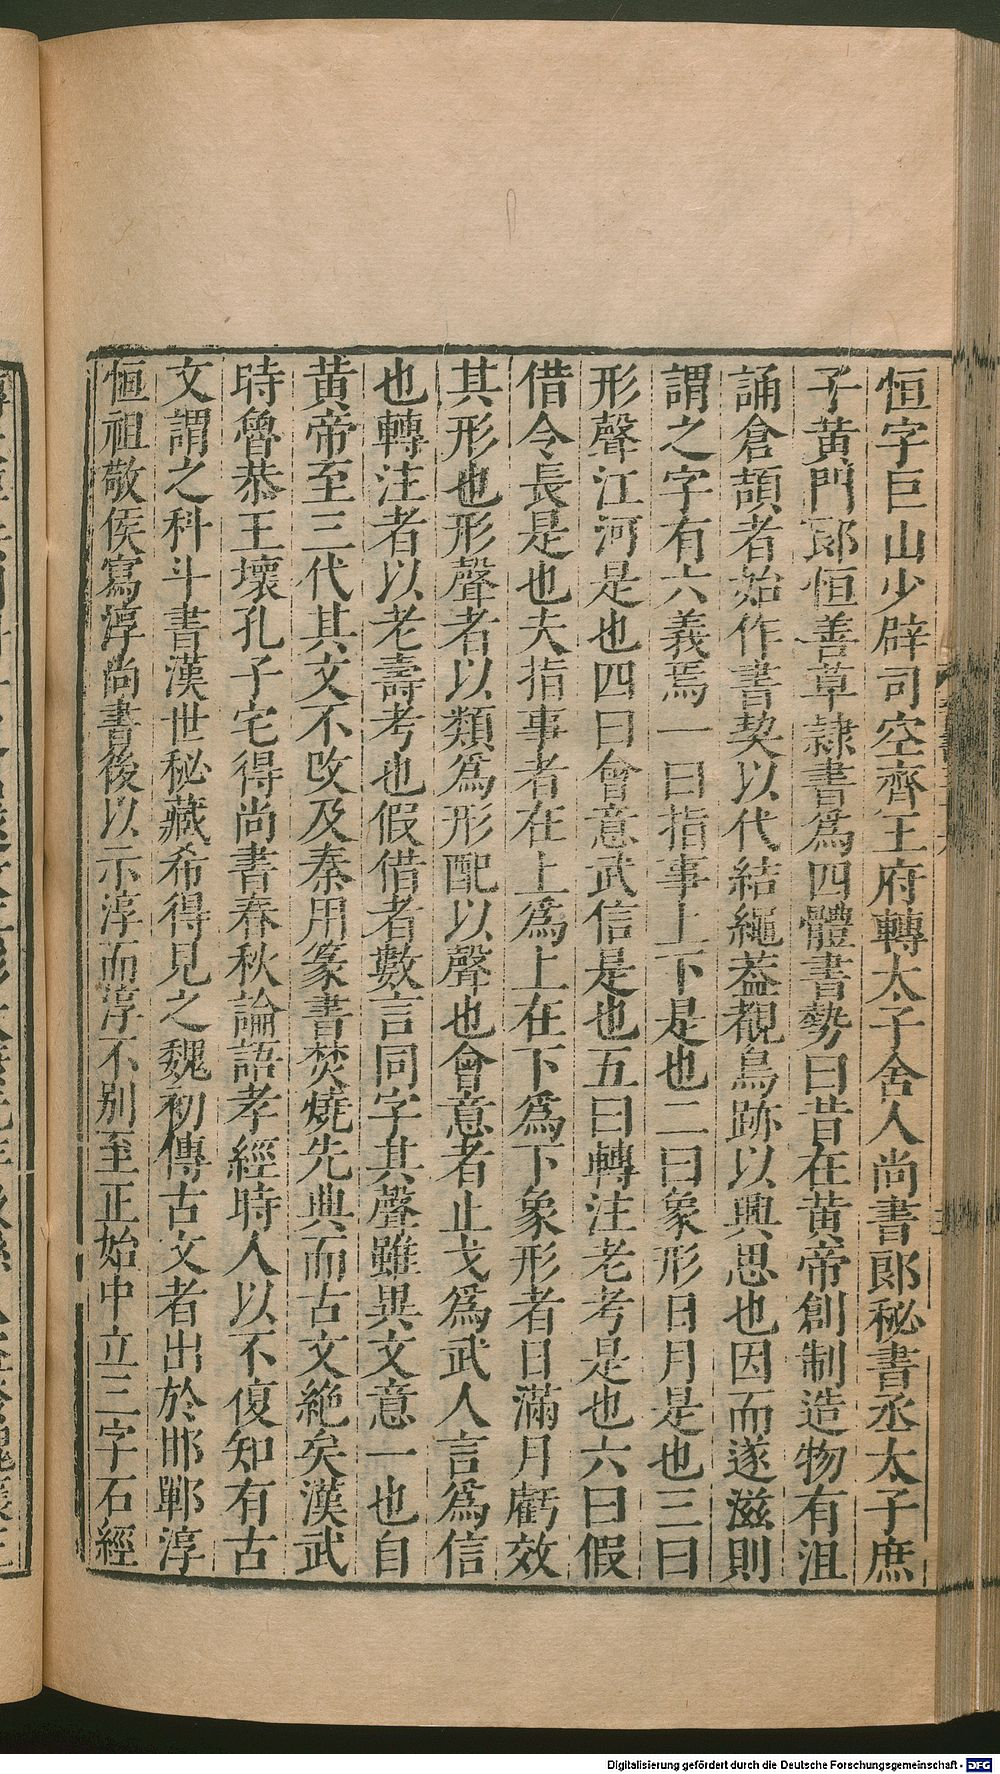 恒字巨山少辟司空齊王府轉太子舍人尚書郎秘書丞太子庶
子黄門郎恒善草隷書爲四體書勢曰昔在黄帝創制造物有沮
誦倉頡者始作書契以代結繩葢覩鳥跡以興思也因而遂滋則
謂之字有六義焉一曰指事上下是也二曰象形日月是也三曰
形聲江河是也四曰會意武信是也五曰轉注老考是也六曰假
借令長是也夫指事者在上爲上在下爲下象形者日滿月虧效
其形也形聲者以類爲形配以聲也會意者止戈爲武人言爲信
也轉注者以老壽考也假借者數言同字其聲雖異文意一也自
黄帝至三代其文不改及秦用篆書焚燒先典而古文絶矣漢武
時魯恭王壞孔子宅得尚書春秋論語孝經時人以不復知有古
文謂之科斗書漢世秘藏希得見之魏初傳古文者出於邯鄲淳
恒祖敬侯寫淳尚書後以示淳而淳不别至正始中立三字石經
Digitalisierung gefördert durch die Deutsche Forschungsgemeinschaft - DFG